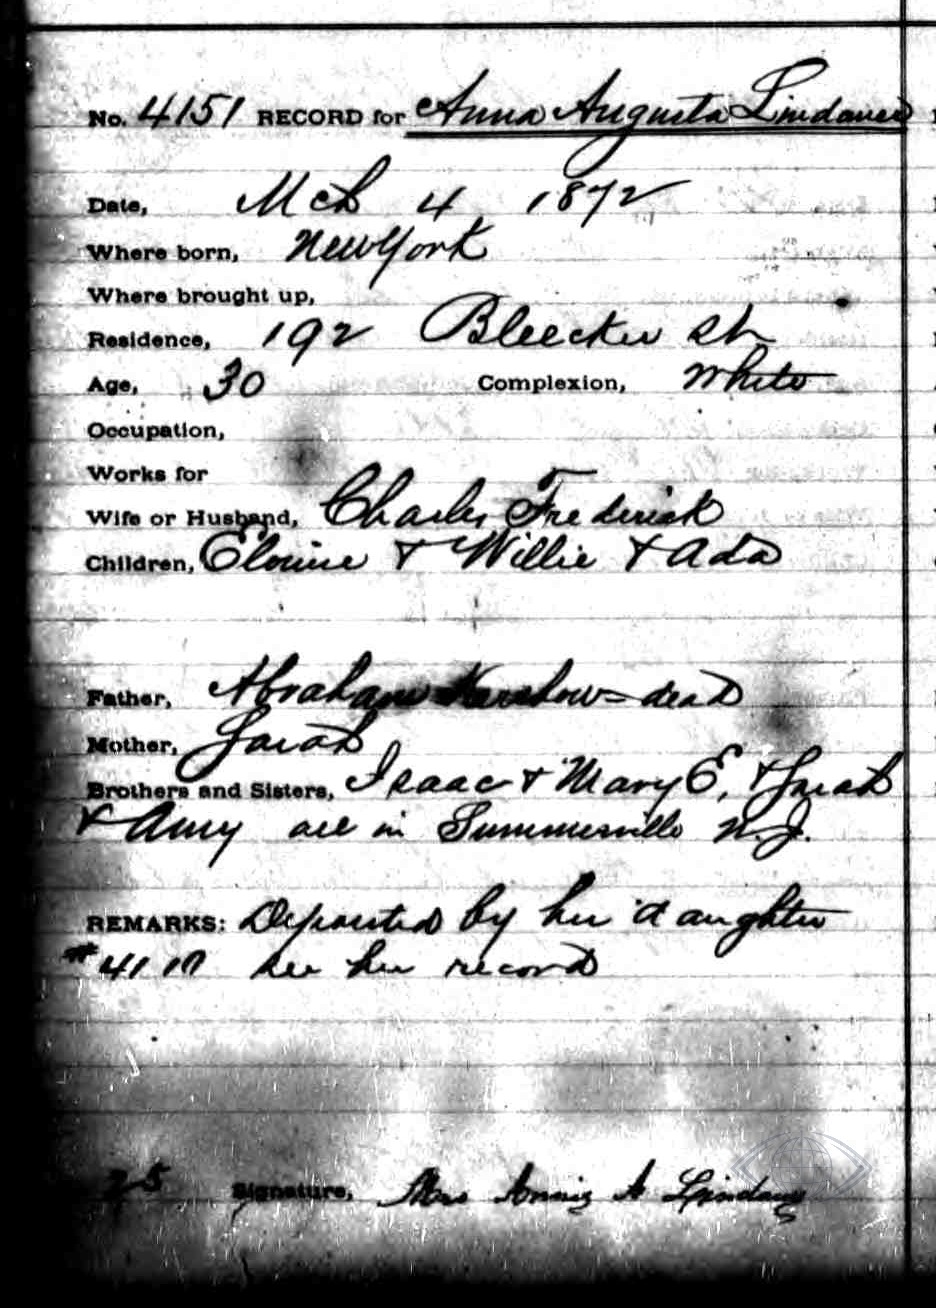 No. 4151 RECORD for Anna Augusta Lindauer
Date, Mch 4 1872
Where born, New York
Where brought up,
Residence, 192 Bleecker St
Age, 30 Complexion, White
Occupation,
Works for
Wife or Husband, Charles Frederick
Children, Elouise & Willie & Ada
Father, Abraham dead
Mother, Sarah
Brothers and Sisters, Isaac & Mary E, & Sarah
& Amy all in Summerville N.J.
REMARKS: Deposited by her daughter
# see her record
25 Signature, Mrs Annie A Lindauer